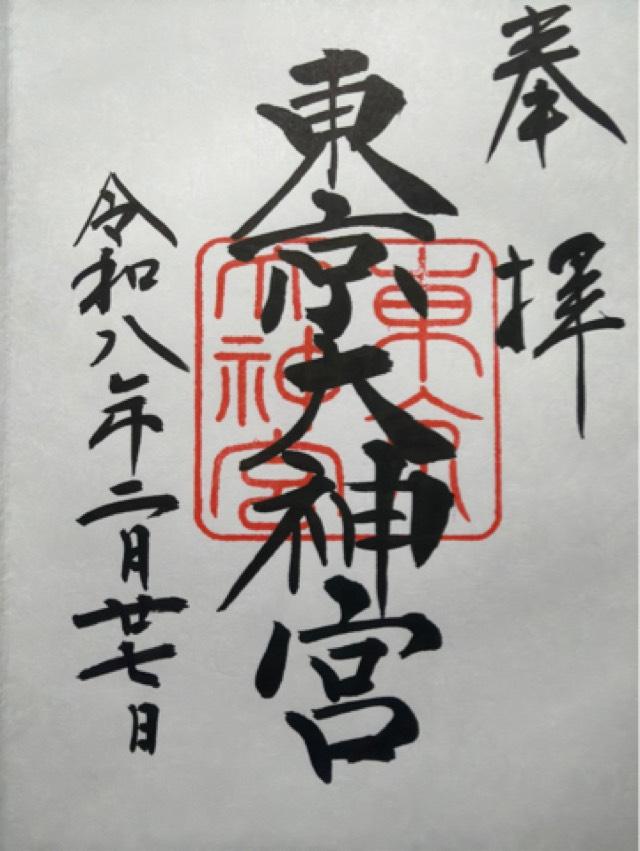 奉拝
東京大神宮
東京大神宮
令和八年二月廿七日